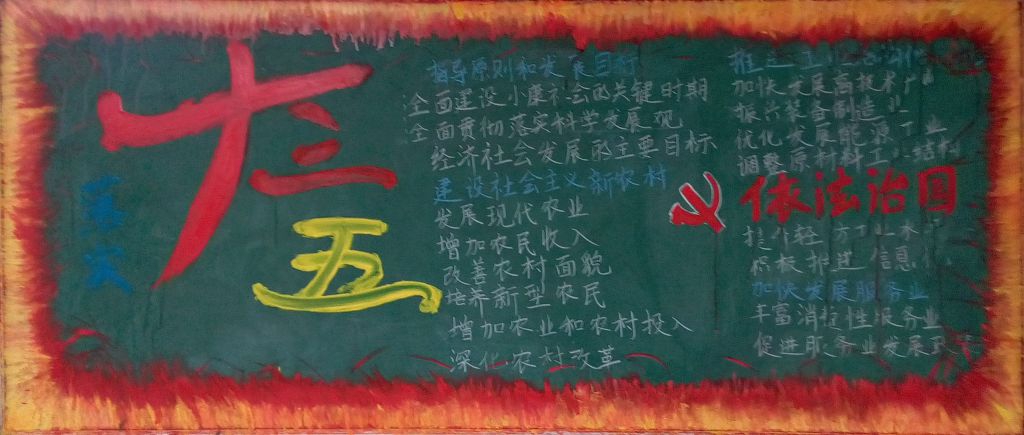 落实
十三
五
指导原则和发展目标
全面建设小康社会的关键时期
全面贯彻落实科学发展观
经济社会发展的主要目标
建设社会主义新农村
发展现代农业
增加农民收入
改善农村面貌
培养新型农民
增加农业和农村投入
深化农村改革
推进工业
加快发展高技术产
振兴装备制造业
优化发展能源工业
调整原材料工 结构
依法治国
提 轻 方工业水
积极推进信息
加快发展服务业
丰富消费性服务业
促进服务业发展